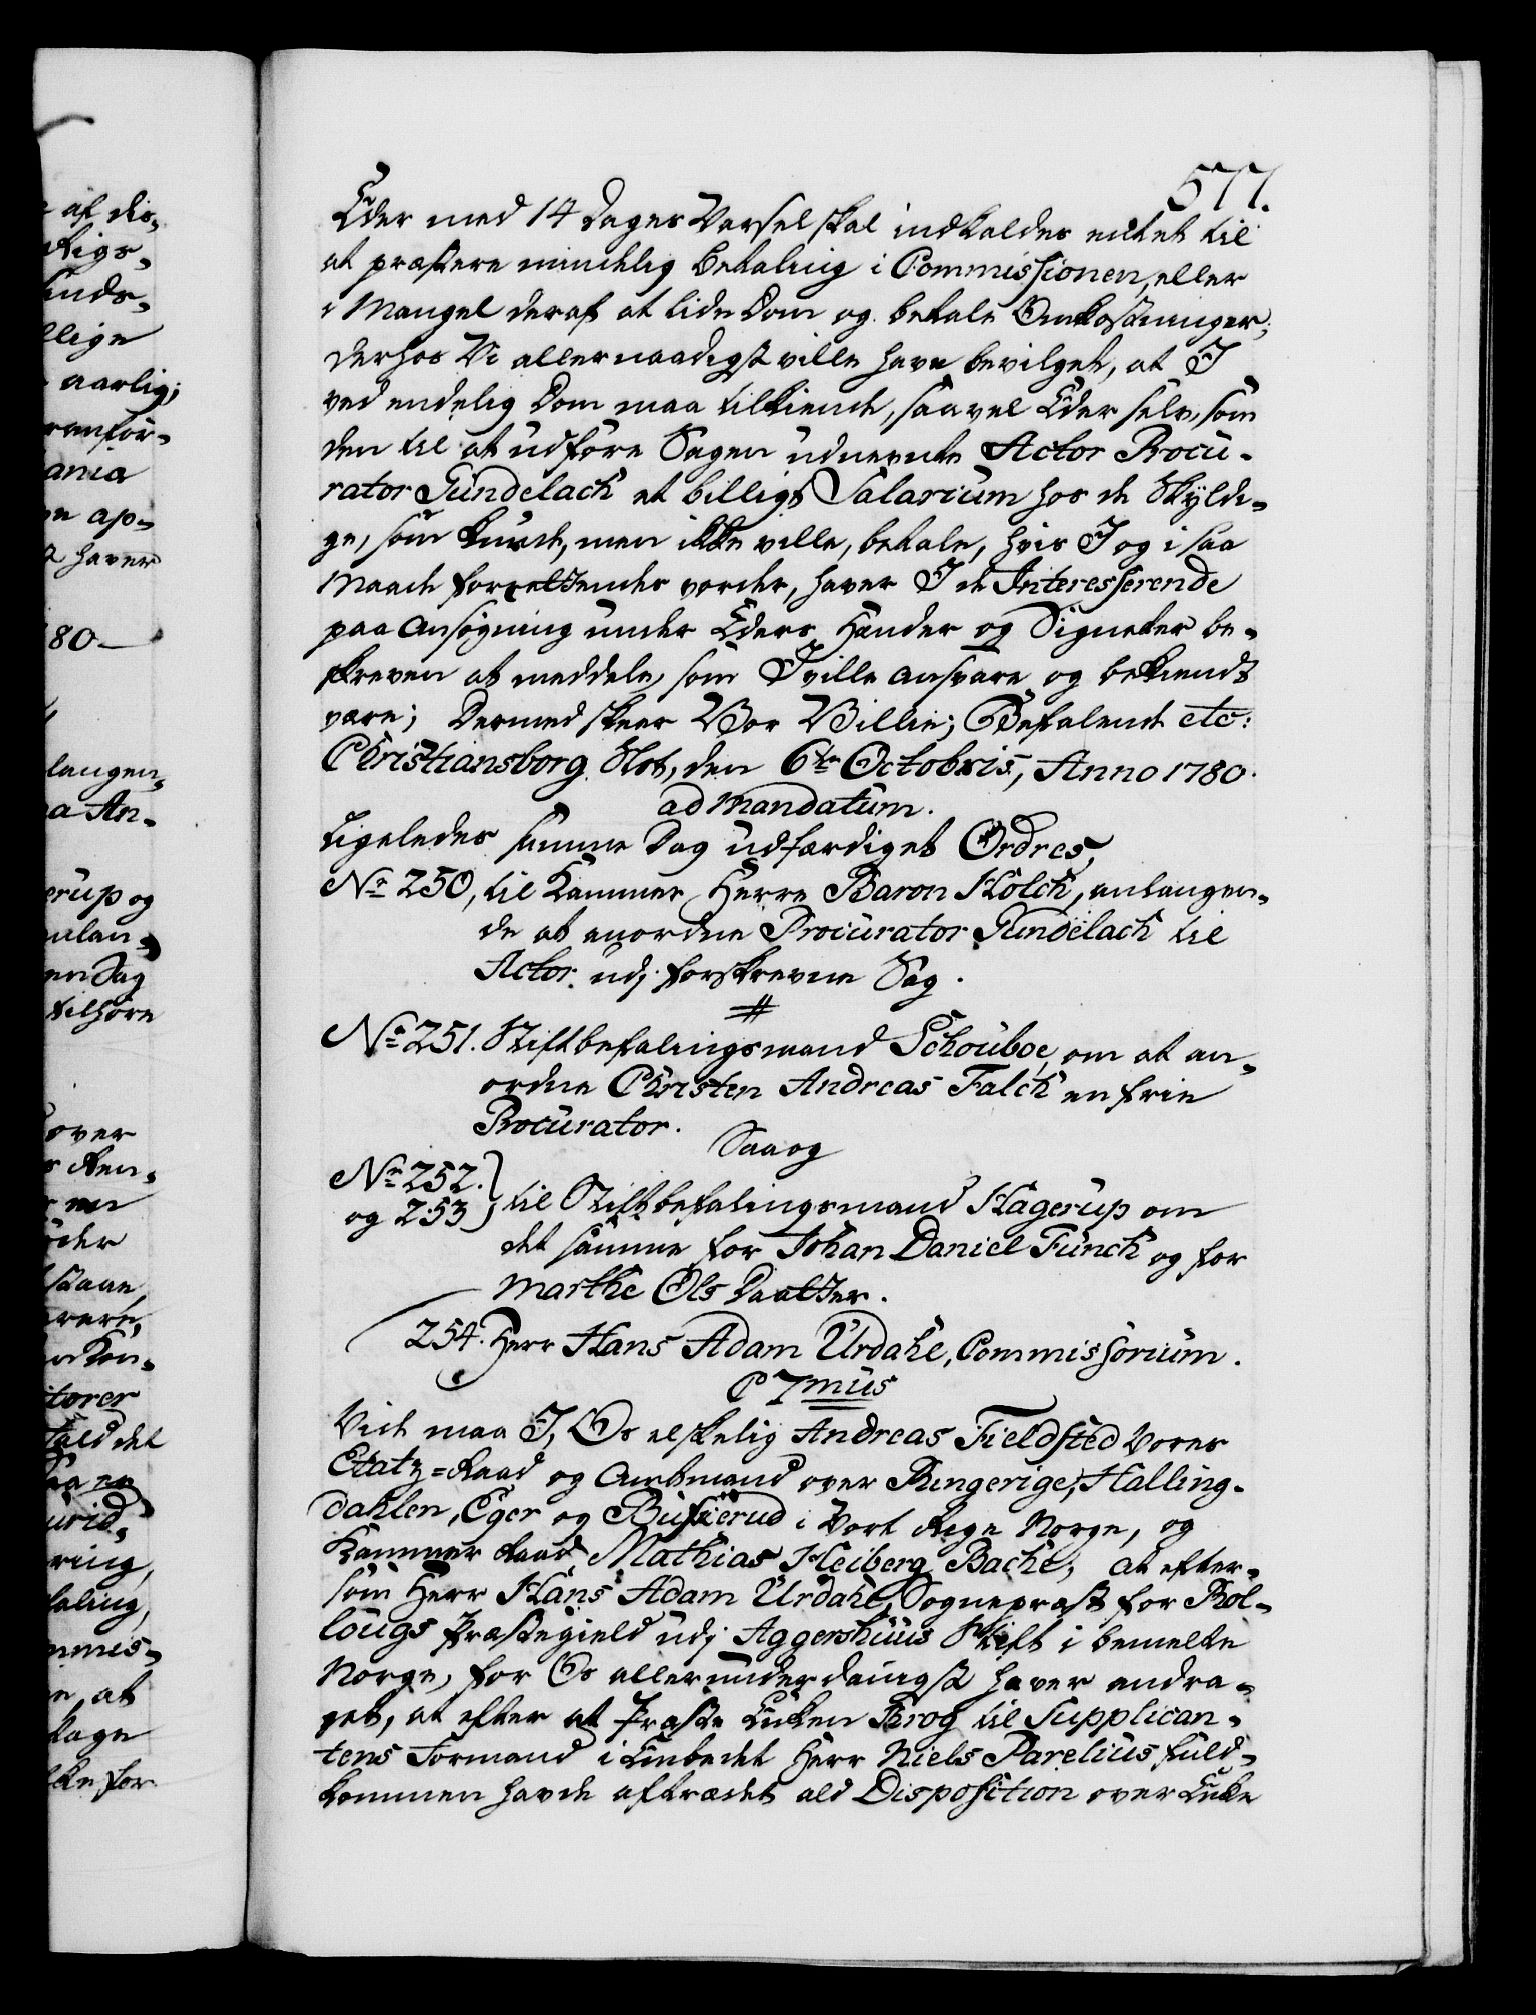 577.
Eder med 14 Dages Varsel skal indkaldes enten til
at præstere mindelig Betaling i Commissionen, eller
i Mangel deraf at lide Dom og betale Omkostninger;
derhos Vi allernaadigst ville have bevilget, at I
ved endelig Dom maa tilkiende, saavel Eder selv, som
den til at udføre Sagen udnevnte Actor Procu-
rator Gündelach et billigt Salarium hos de Skyldi-
ge, som kunde, men ikke ville, betale, hvis I og i saa
Maade forrettendes vorder, haver I de Interesserende
paa Ansøgning under Eders Hænder og Signeter be-
skreven at meddele, som I ville ansvare og bekiendt
være; Dermed skeer Vor Villie; Befalende etc:
Christiansborg Slot, den 6te Octobris, Anno 1780.
ad mandatum.
Ligeledes samme Dag udfærdiget Ordres,
No 250, til Kammer Herre Baron Holck, anlangen-
de at anordne Procurator Gündelach til
Actor udj forskrevne Sag.
No 251. Stiftbefalingsmand Schouboe, om at an-
ordne Christen Andreas Falch en frie
Procurator.
Saa og
No 252.
og 253 } til Stiftbefalingsmand Hagerup om
det samme for Johan Daniel Fünch og for
Marthe Ols Daatter.
254. Herr Hans Adam Urdahl, Commissorium.
C 7mus
Vide maa I, Os elskelig Andreas Fieldsted Vores
Etatz=Raad og Amtmand over Ringerige, Halling-
dahlen, Eger og Buskerud i Vort Rige Norge, og
Kammer Raad Mathias Heiberg Bache, at efter-
som Herr Hans Adam Urdahl, Sognepræst for Rol-
lougs Præstegield udj Aggershuus Stift i bemelte
Norge, for Os allerunderdanigst haver andra-
get, at efter at Præste Enken Brog til Supplican-
tens Formand i Embedet Herr Niels Parelius fuld-
kommen havde aftrædet ald Disposition over Enke